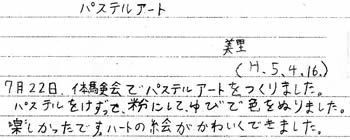 パステルアート
美里
(H.5.4.16.)
7月22日、体験会でパステルアートをつくりました。
パステルをけずって、粉にして、ゆびで色をぬりました。
楽しかったです。ハートの絵がかわいくできました。